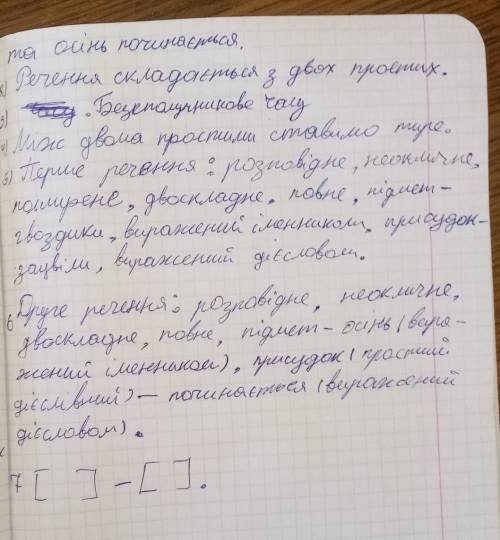 та осінь починається.
2) Речення складається з двох простих.
3) Безсполучникове часу
4) Між двома простими ставимо тире.
5) Перше речення: розповідне, неокличне,
поширене, двоскладне, повне, підмет-
гвоздики, виражений іменником, присудок-
зацвіли, виражений дієсловом.
6 Друге речення: розповідне, неокличне,
двоскладне, повне, підмет - осінь (вира-
жений іменником), присудок (простий
дієслівний) - починається (виражений
дієсловом).
7 [ ] - [ ].